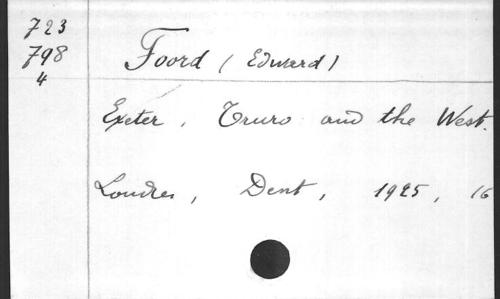 723
798
4
Foord (Edward)
Exeter, Truro and the West.
Londres, Dent, 1925, 16